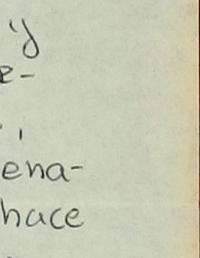 y
e-
,
ena-
hace